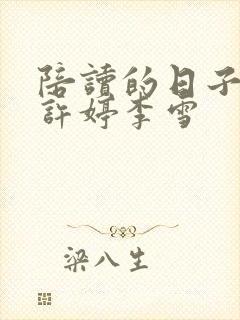 陪讀的日子
許婷李雪
梁八生